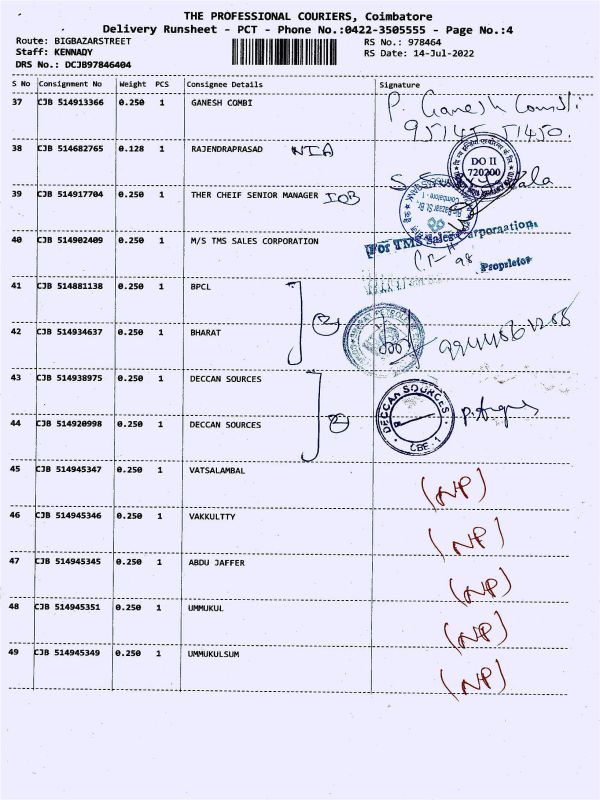 THE PROFESSIONAL COURIERS, Coimbatore
Delivery Runsheet - PCT - Phone No.:0422-3505555 - Page No.:4
Route: BIGBAZARSTREET RS No.: 978464
Staff: KENNADY RS Date: 14-Jul-2022
DRS No.: DCJB97846404
S No Consignment No Weight PCS Consignee Details Signature
37 CJB 514913366 0.250 1 GANESH COMBI P. Ganesh Combi
95145 51450.
38 CJB 514682765 0.128 1 RAJENDRAPRASAD NIA
DO II
720200
39 CJB 514917704 0.250 1 THER CHEIF SENIOR MANAGER IOB
Coimbatore - 1
40 CJB 514902409 0.250 1 M/S TMS SALES CORPORATION
For TMS Sales Corporaation.
Propristor
41 CJB 514881138 0.250 1 BPCL
2
42 CJB 514934637 0.250 1 BHARAT
43 CJB 514938975 0.250 1 DECCAN SOURCES
DECCAN SOURCES
CBE-1
2
44 CJB 514920998 0.250 1 DECCAN SOURCES
45 CJB 514945347 0.250 1 VATSALAMBAL (NP)
46 CJB 514945346 0.250 1 VAKKULTTY (NP)
47 CJB 514945345 0.250 1 ABDU JAFFER (NP)
48 CJB 514945351 0.250 1 UMMUKUL (NP)
49 CJB 514945349 0.250 1 UMMUKULSUM (NP)